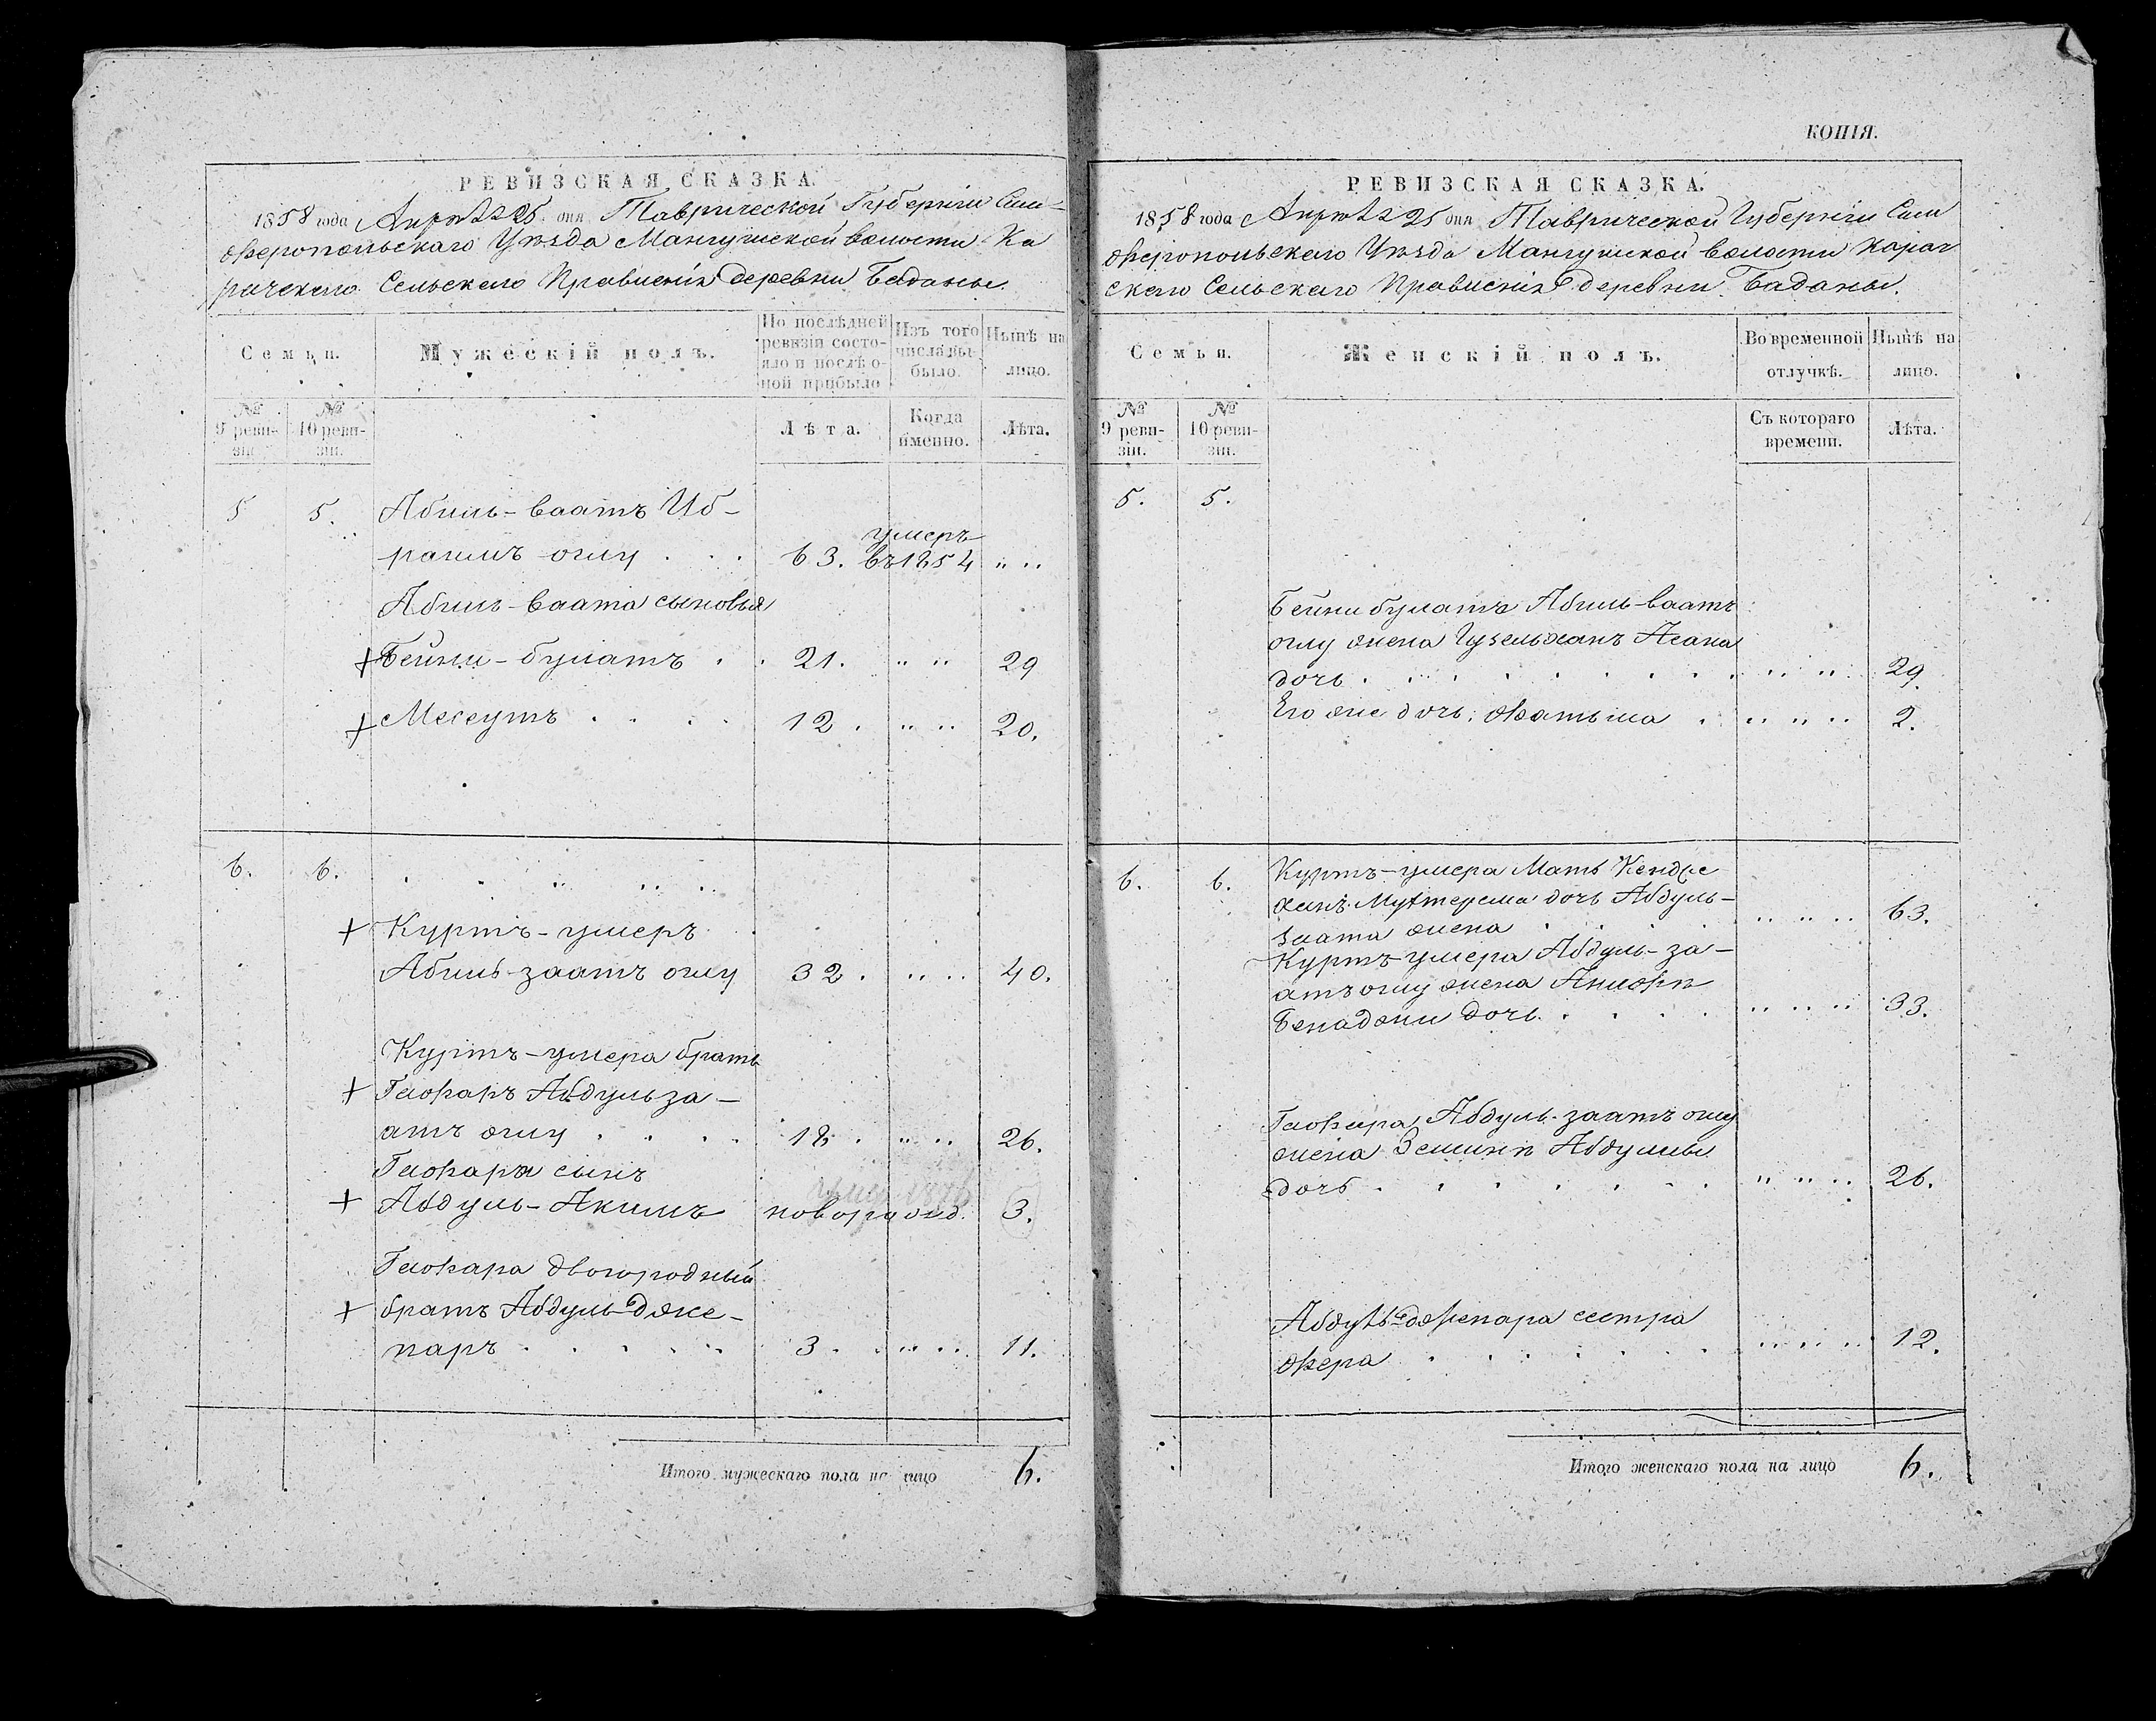 РЕВИЗСКАЯ СКАЗКА.
1858 года Апрѣля 25 дня Таврической Губерніи Сим-
феропольскаго Уѣзда Мангушской волости Ка
рачскаго Сельскаго Правленія деревни Баданы.
Семьи.
Мужескій полъ.
По послѣдней ревизіи состояло и послѣ оной прибыло
Изъ того числа выбыло.
Нынѣ на лицо.
№ 9 ревизіи.
№ 10 ревизіи.
Лѣта.
Когда именно.
Лѣта.
5 5. Абиль-ваатъ Иб-
рагимъ оглу 63. умеръ въ 1854
Абиль-ваата сыновья
Бейни-булатъ 21. 29
Месеутъ 12. 20.
6. 6.
Куртъ-умеръ
Абиль-заатъ оглу 32. 40.
Куртъ-умера братъ
Гафаръ Абдульза-
атъ оглу 18. 26.
Гафара сынъ
Абдуль-Акимъ новорожд. 3.
Гафара двоюродный
братъ Абдуль-Дже-
паръ 3. 11.
Итого мужескаго пола на лицо 6.
КОПІЯ.
РЕВИЗСКАЯ СКАЗКА.
1858 года Апрѣля 25 дня Таврической Губерніи Сим
феропольскаго Уѣзда Мангушской волости Карач
скаго Сельскаго Правленія деревни Баданы.
Семьи.
Женскій полъ.
Во временной отлучкѣ.
Нынѣ на лицо.
№ 9 ревизіи.
№ 10 ревизіи.
Съ котораго времени.
Лѣта.
5. 5.
Бейни булата Абиль-ваатъ
оглу жена Гузельханъ Асана
дочь 29.
Его же дочь Фатьма 2.
6. 6. Куртъ-умера Мать
ханъ Мутерема дочь Абдуль-
заата жена 63.
Куртъ-умера Абдуль-за-
атъ оглу жена
дочь 33.
Гафара Абдуль-заатъ оглу
жена Абдулы
дочь 26.
Абдуль-джепара сестра
Фера 12.
Итого женскаго пола на лицо 6.